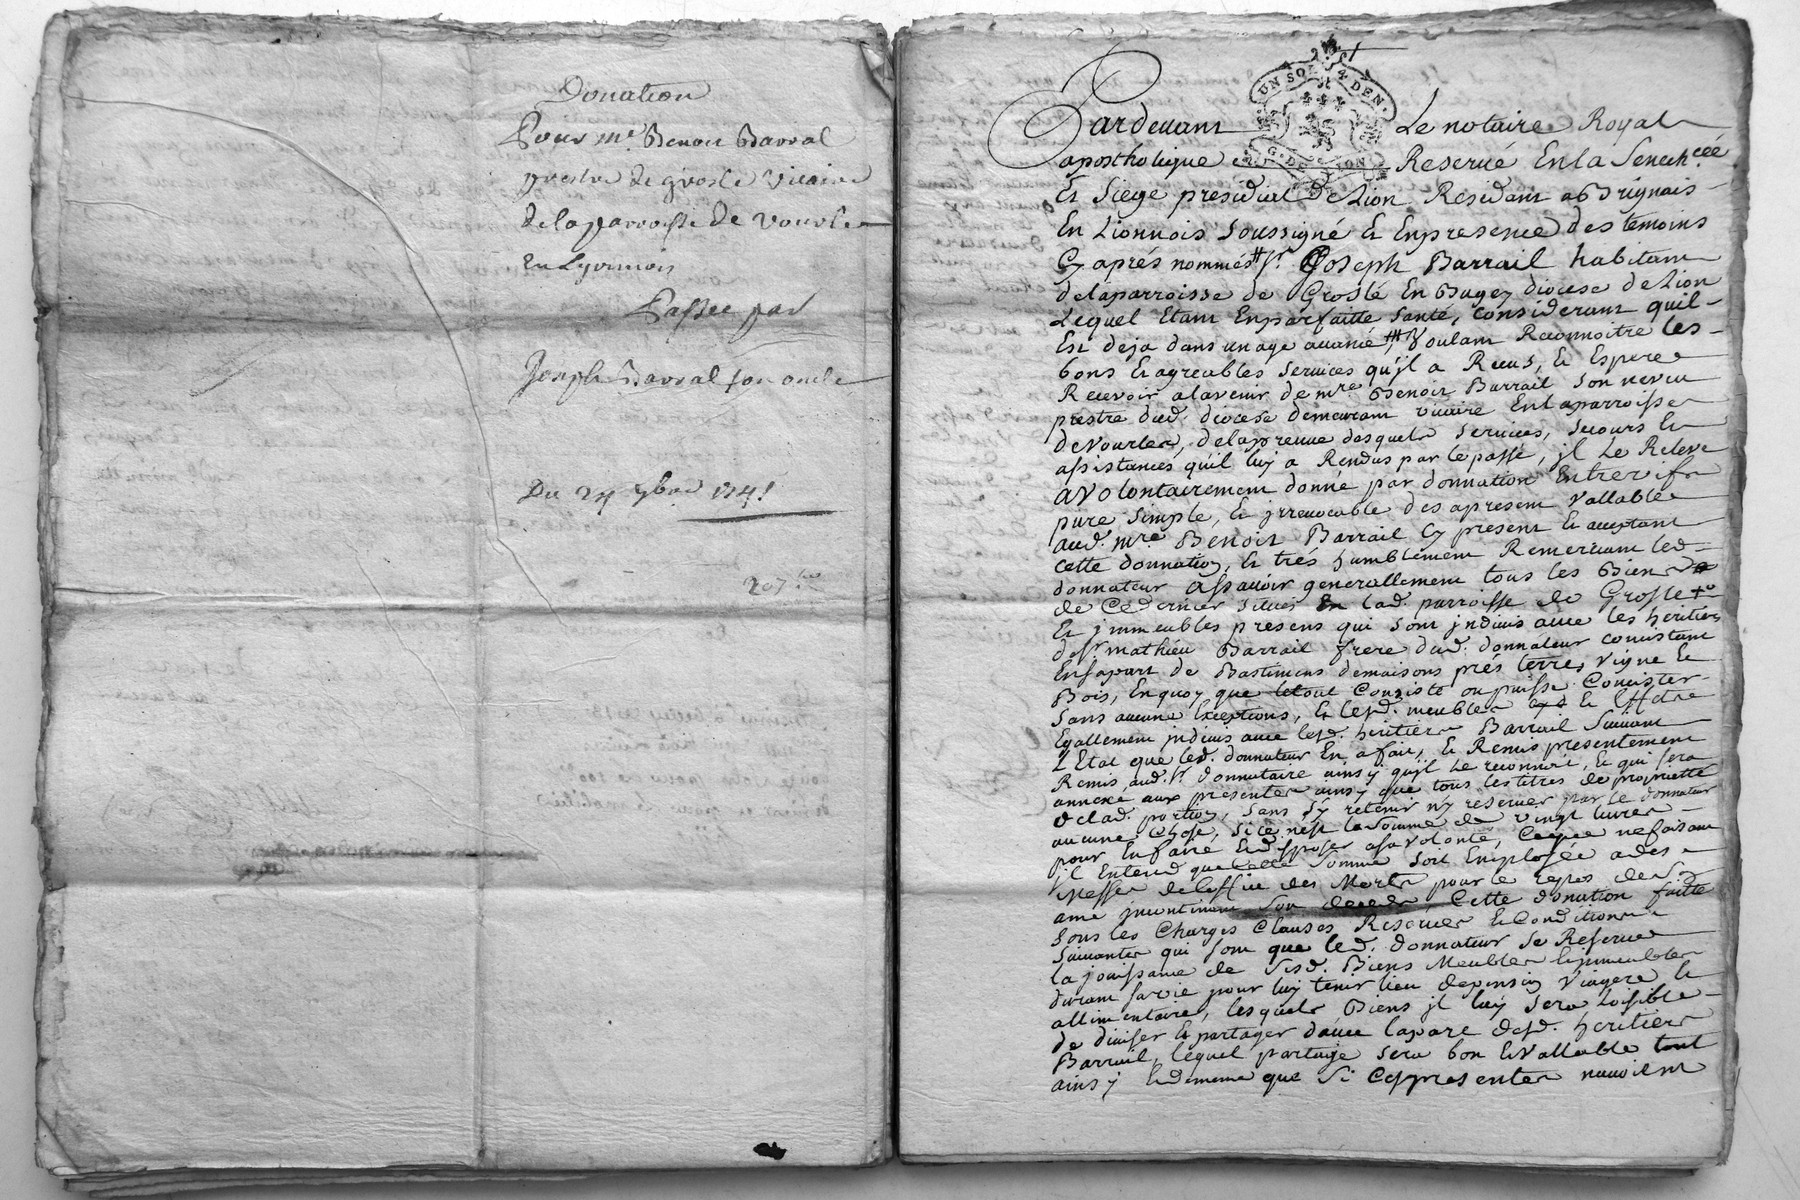 Donation
Pour mre. Benoit Barral
prestre de grosle vicaire
delaparroisse de vourle
En Lyonnois
Passee par
Joseph Barral son oncle
Du 24 9bre 1741
207
UN SOL 4 DEN.
G. DE LYON
Pardevant Le notaire Royal
apostholique et Reservé En la Senechcée
Et Siege presidial De Lion Residant a Brignais
En Lionnois Soussigné Et En presence des temoins
Cy aprés nommés # Sr. Joseph Barrail habitant
delaparroisse de Groslé En Bugey diocese de Lion
Lequel Etant En parfaitte santé, considerant quil
Est deja dans un age avancé, # Voulant Reconnoitre les
bons Et agreables services qu'il a Recus, Et Espere
Recevoir alavenir de mre Benoit Barrail Son neveu
prestre dud. diocese demeurant vicaire En la parroisse
de Vourles, delapreuve desquels services, secours Et
assistances qu'il luy a Rendus par le passé, jl Le Releve
a Volontairement donné par donnation Entrevifs
pure Simple, Et jrrevocable des apresent Vallable
aud. mre. Benoit Barrail Cy present Et acceptant
cette donnation, Et trés humblement Remerciant led.
donnateur Assavoir generallement tous les Biens
de Ce dernier situés En lad. parroisse de Grosle +
Et jmmeubles presens qui sont jndivis avec les heritiers
de Sr mathieu Barrail frere dud. donnateur consistant
En sa part de Bastimens de maisons prés terres vigne Et
Bois, En quoy que letout Consiste ou puisse Concister
Sans aucune Exceptions, Et lesd. meubles Et Effets
Egallement jndivis avec lesd. heritiers Barrail Suivant
L'Etat que led. donnateur En a fait, Et Remis presentement
Remis aud. Sr. donnataire ainsy qu'jl Le reconnoit, Et qui sera
annexé aux presentes ainsy que tous les titres de proprietté
de lad. portion, sans s'y retenir n'y reserver par le donnateur
aucune chose, si ce n'est la somme de vingt livres
pour En faire Et disposer a sa volonté, Ce que ne faisant
jl Entend que cette Somme soit Employée a des
Messes de l'office des Morts pour le repos de son
ame jncontinent son deceds Cette donation faitte
sous les Charges Clauses Reserves Et Conditions
suivantes qui sont que led. donnateur Se Reserve
la jouissance de Sesd. Biens Meubles Et jmmeubles
durant sa vie pour luy tenir lieu de pension Viagere Et
allimentaire, lesquels Biens jl luy sera Loisible
de diviser Et partager d'avec la part desd. heritiers
Barrail, lequel partage sera bon Et Vallable tout
ainsy Et de meme que Si Ces presentes n'avoient